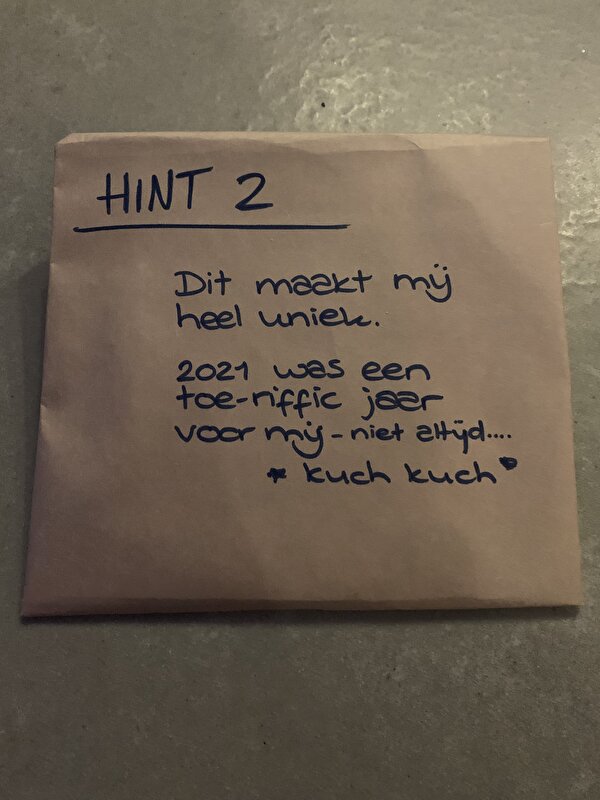 HINT 2
Dit maakt mij
heel uniek.
2021 was een
toe-riffic jaar
voor mij - niet altijd....
* kuch kuch*